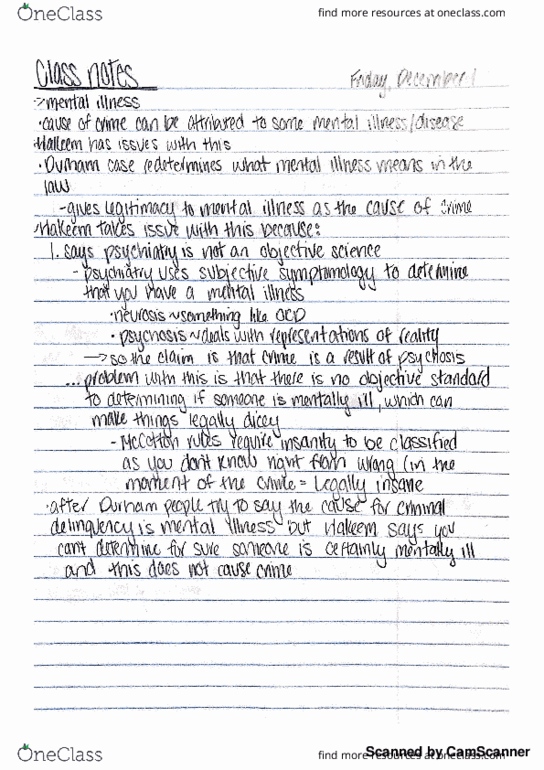 OneClass
find more resources at oneclass.com
Class notes
Friday, December 1
->mental illness
•cause of crime can be attributed to some mental illness/disease
Hakeem has issues with this
•Durham case redetermines what mental illness means in the
law
-gives legitimacy to mental illness as the cause of crime
Hakeem takes issue with this because:
1. says psychiatry is not an objective science
- psychiatry uses subjective symptomology to determine
that you have a mental illness
•neurosis ~ something like OCD
• psychosis ~ deals with representations of reality
-> so the claim is that crime is a result of psychosis
...problem with this is that there is no objective standard
to determining if someone is mentally ill, which can
make things legally dicey
- McCotton rules require insanity to be classified
as you don't know right from wrong (in the
moment of the crime = legally insane
•after Durham people try to say the cause for criminal
delinquency is mental illness but Hakeem says you
can't determine for sure someone is certainly mentally ill
and this does not cause crime
OneClass
find more resources at oneclass.com
Scanned by CamScanner